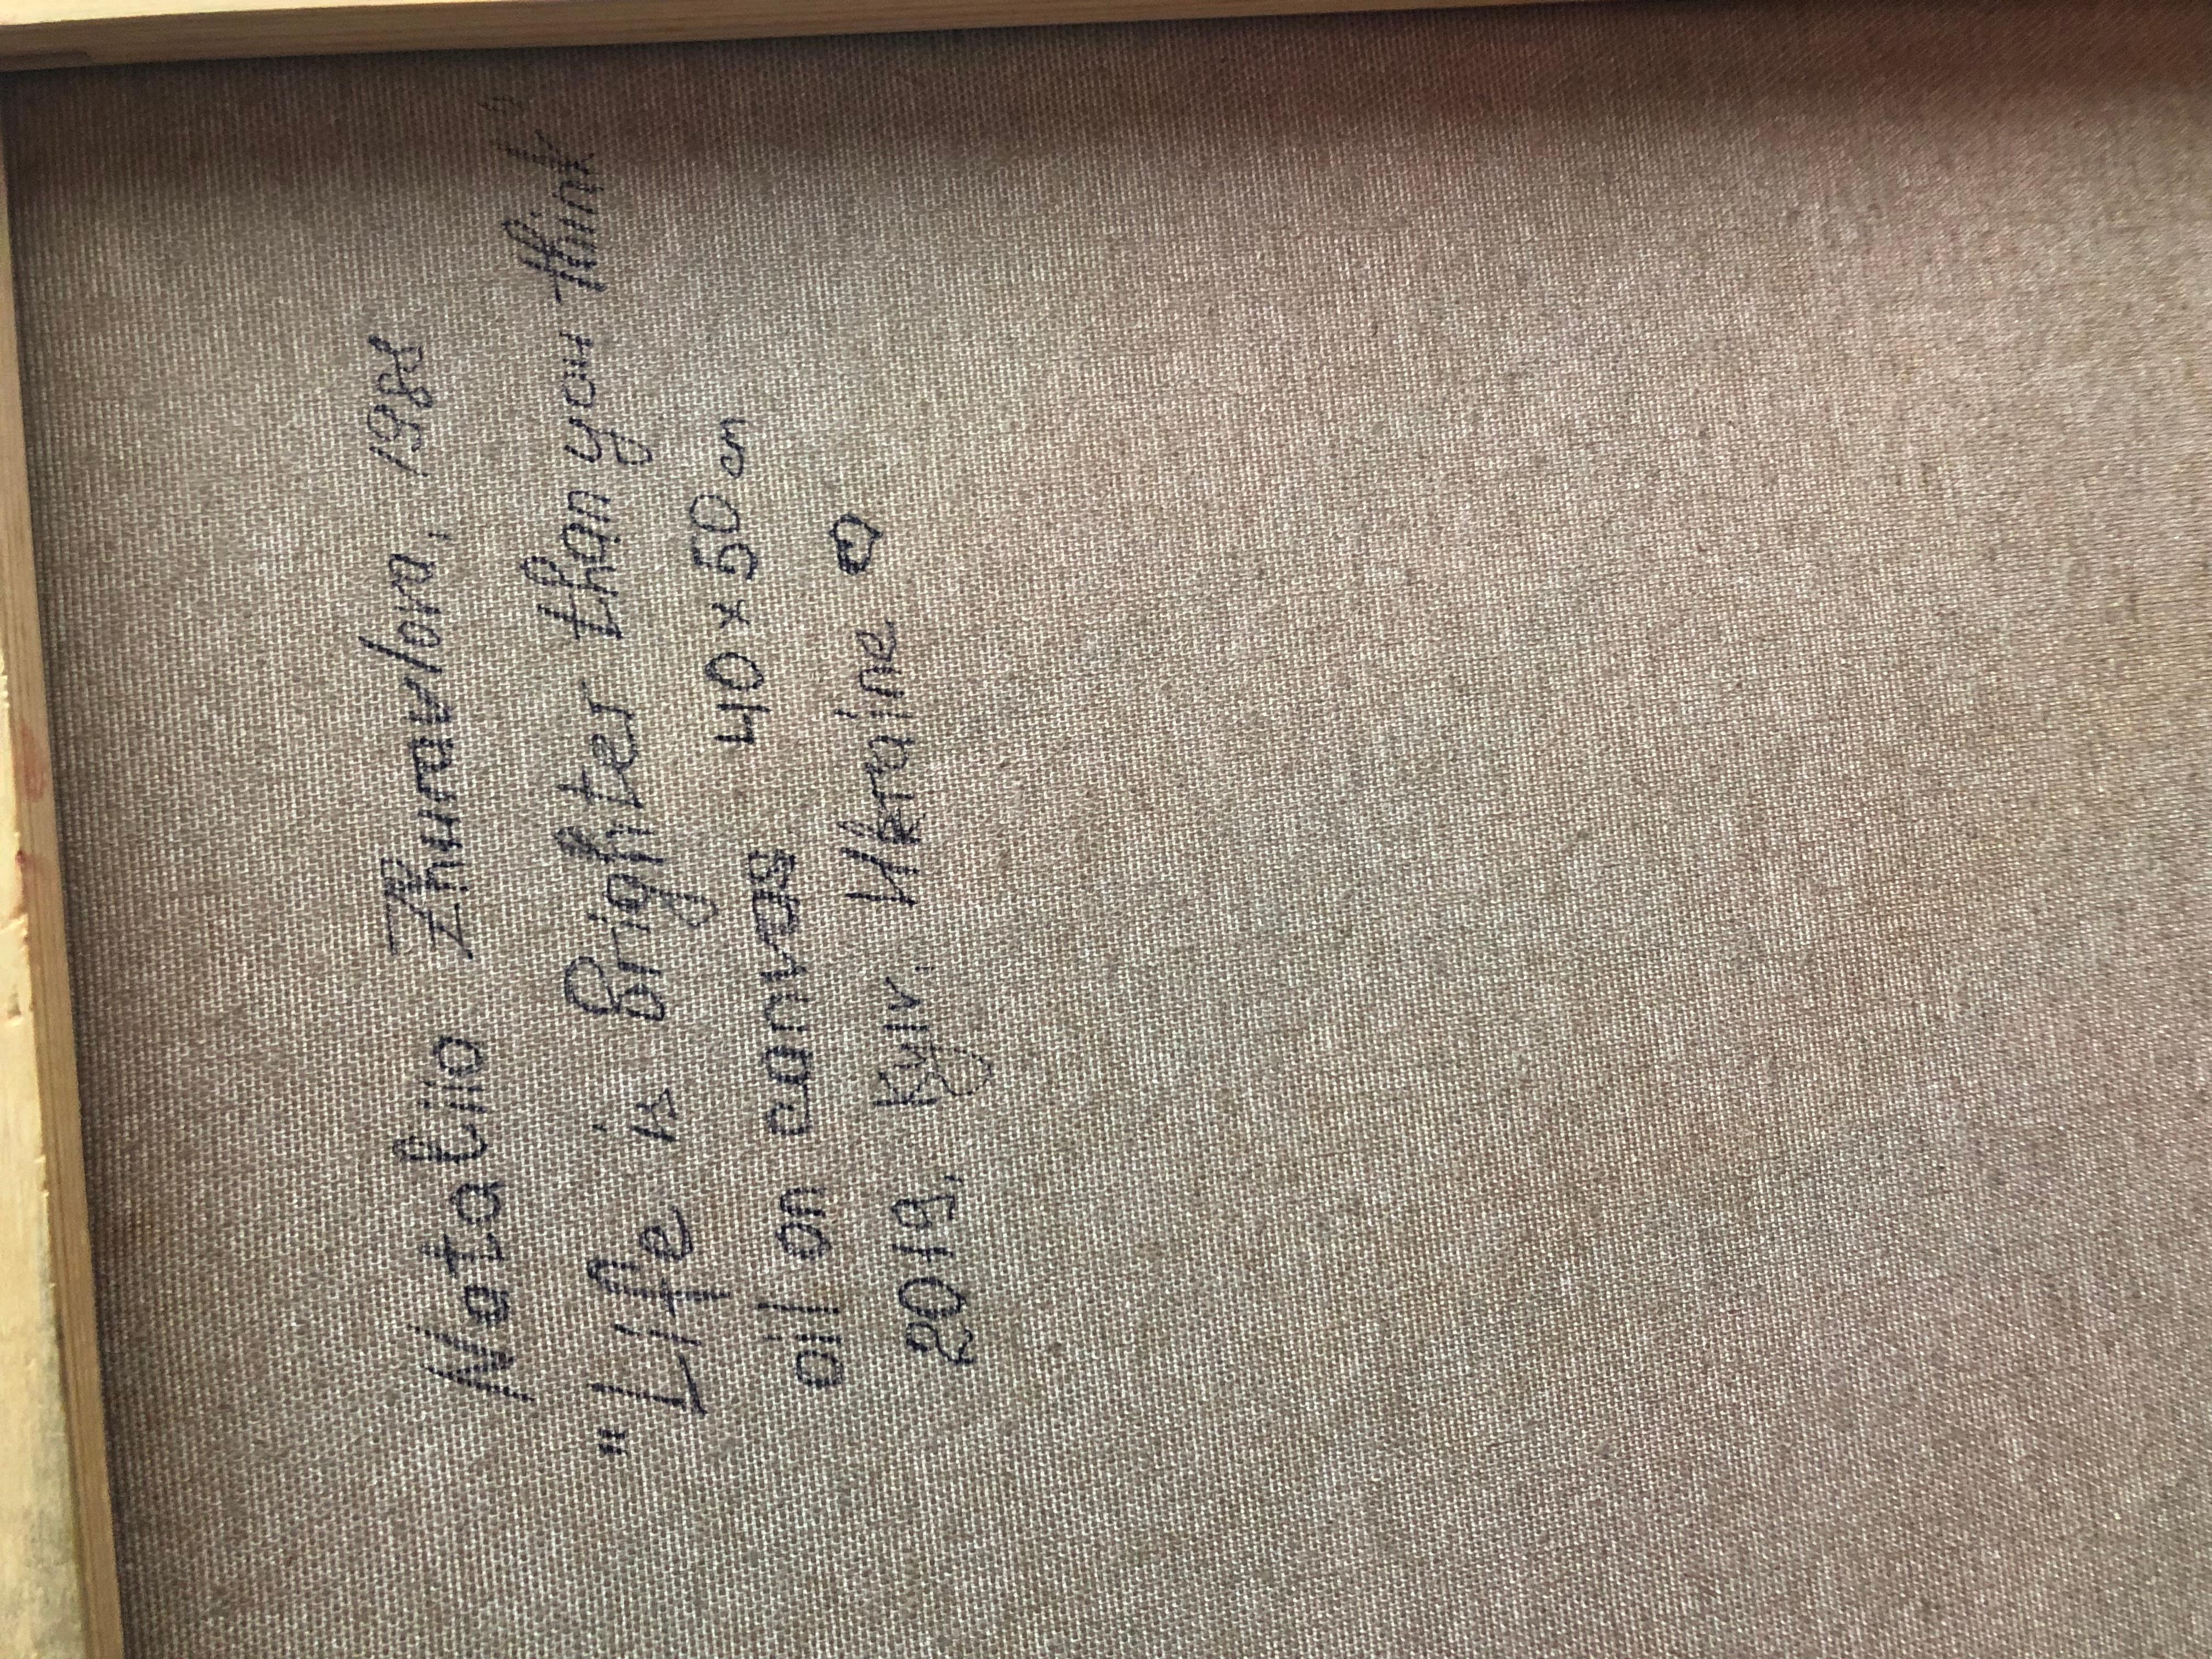 Nataliia Zhuravlova, 1988
"Life is Brighter than you think"
oil on canvas 40 x 50 cm
2019, Kyiv, Ukraine ♡